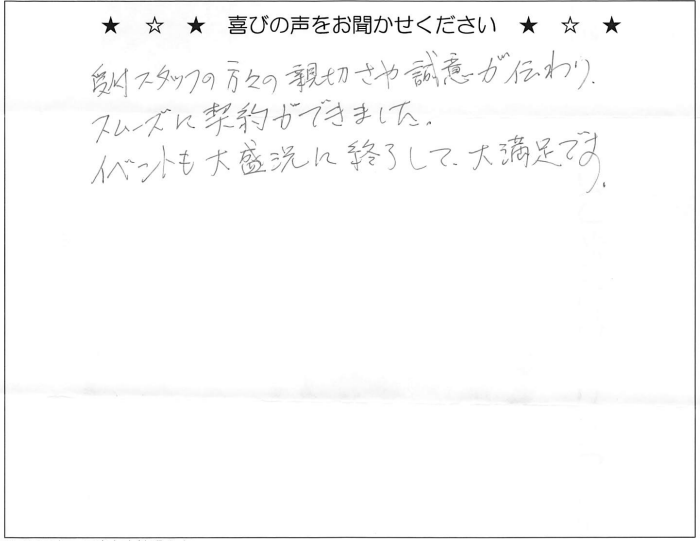 ★ ☆ ★ 喜びの声をお聞かせください ★ ☆ ★
受付スタッフの方々の親切さや誠意が伝わり、
スムーズに契約ができました。
イベントも大盛況に終了して、大満足です。